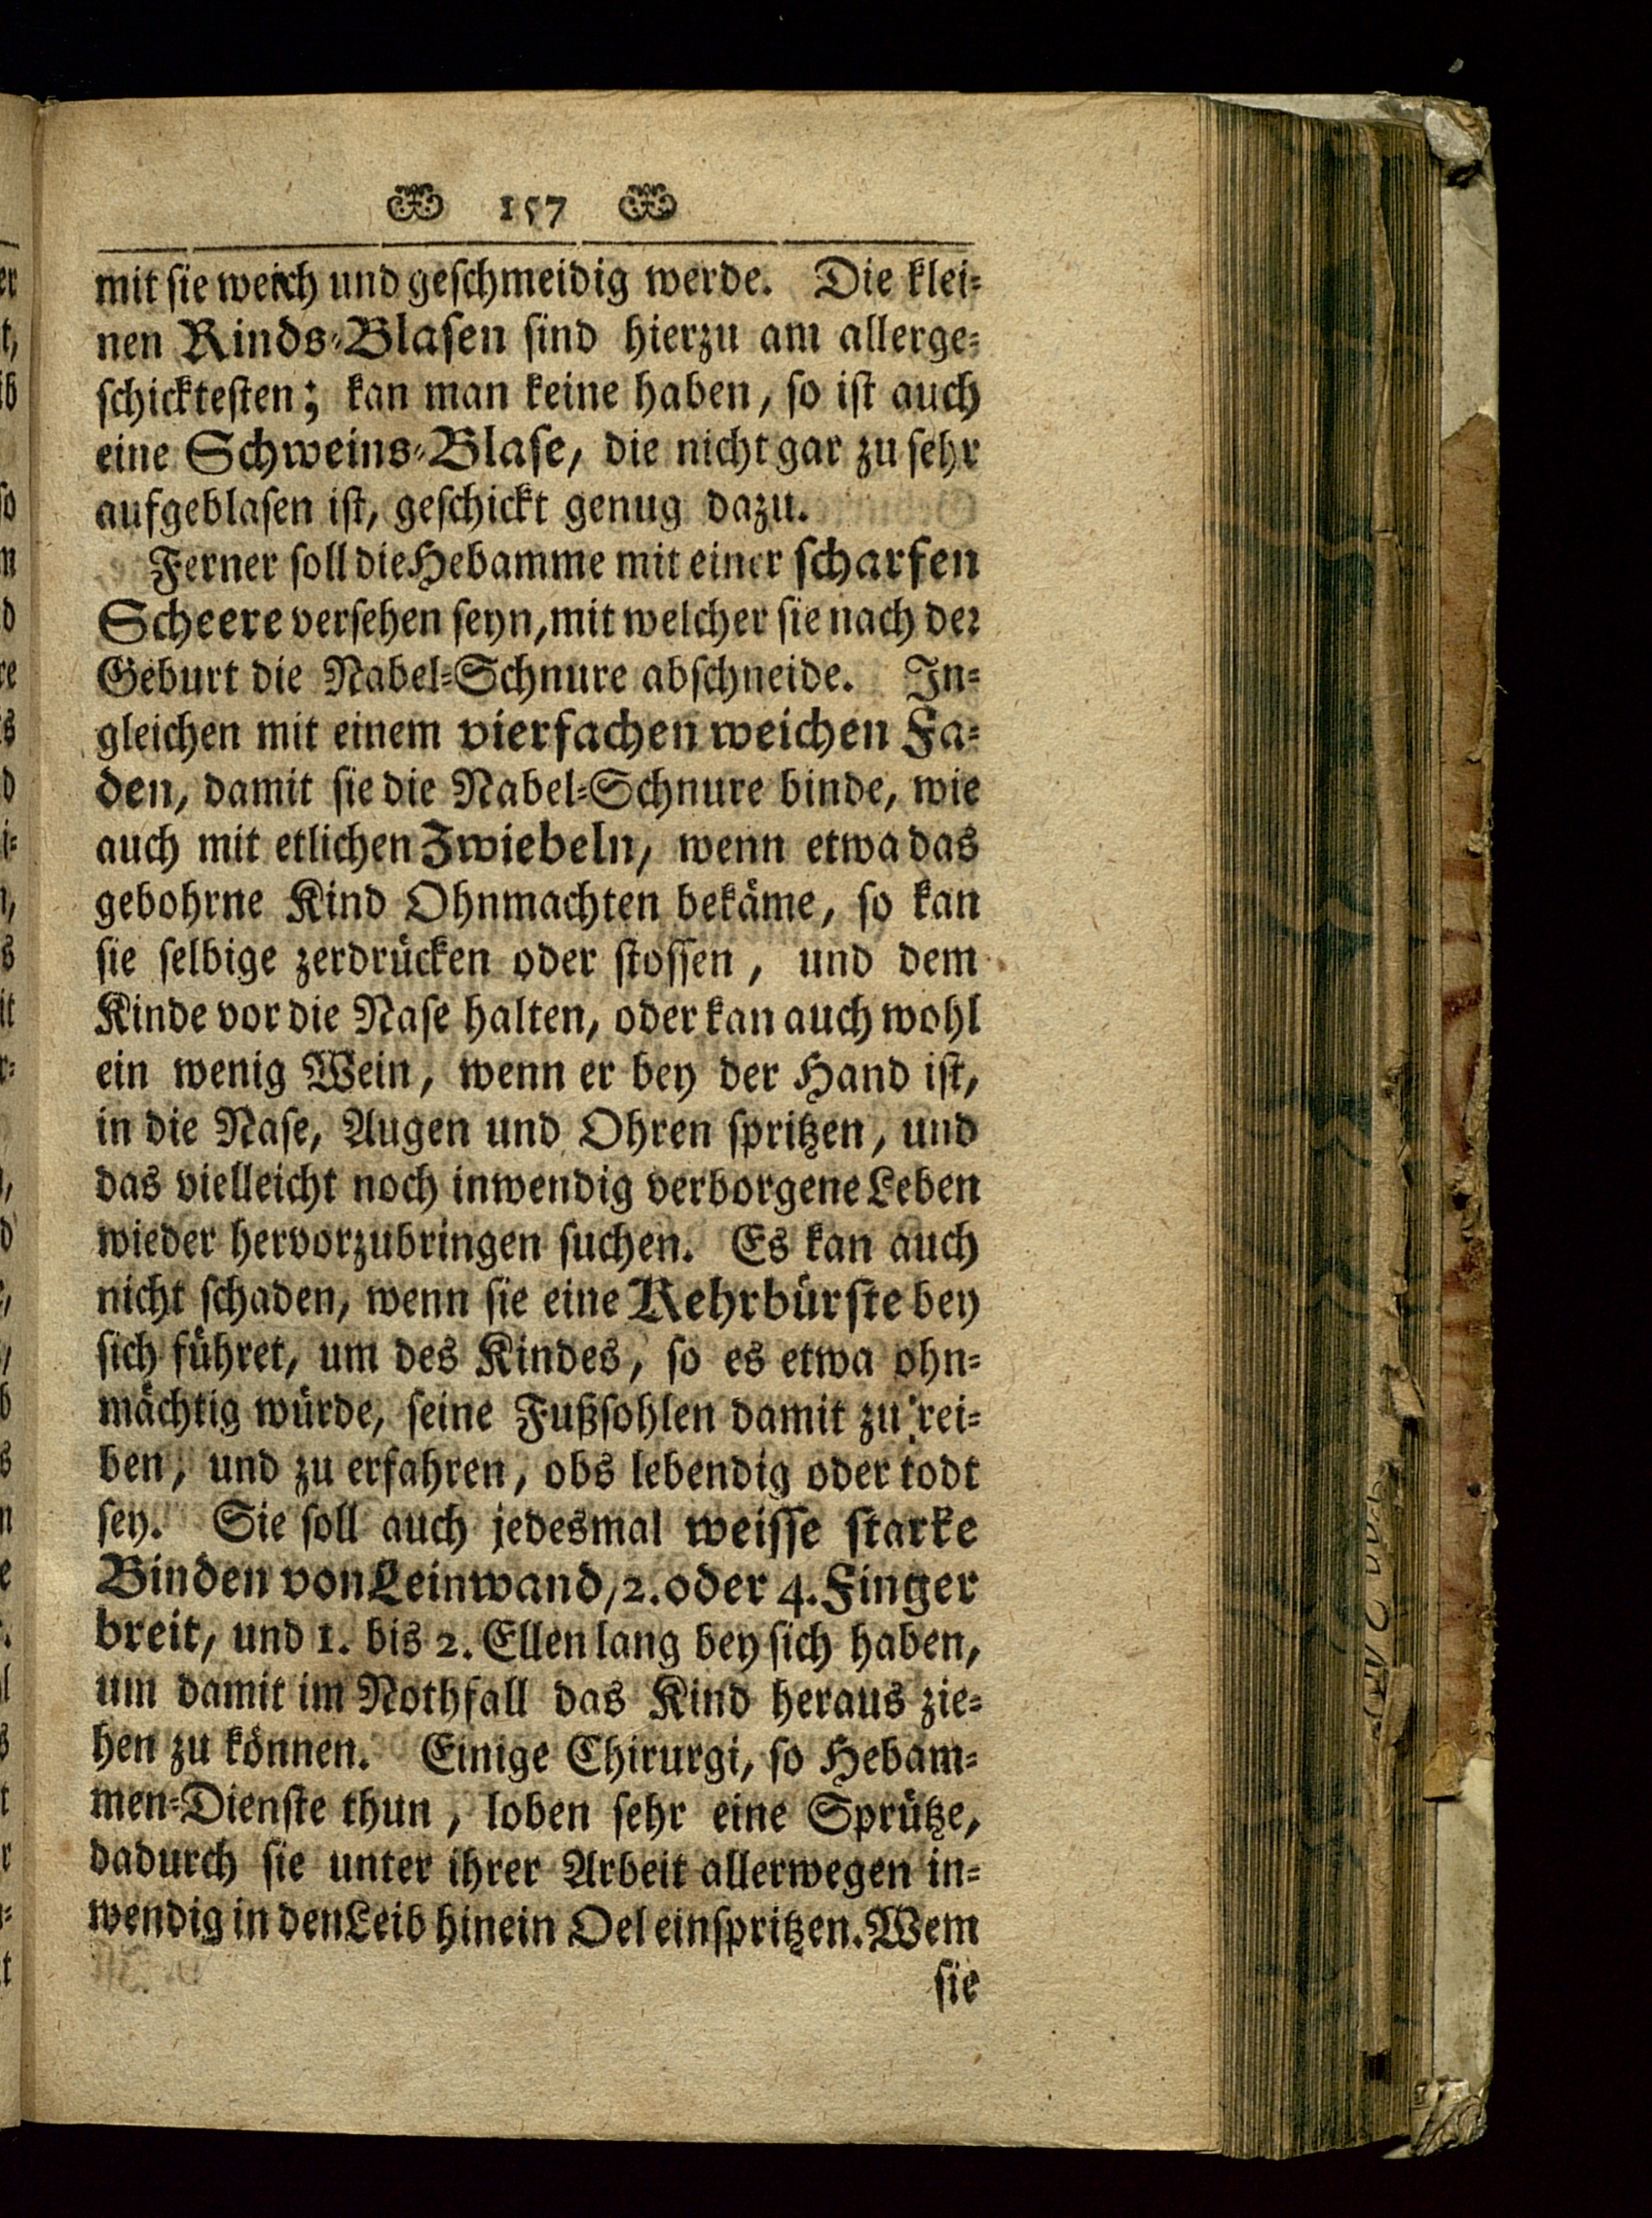 157
mit sie weich und geschmeidig werde. Die klei=
nen Rinds=Blasen sind hierzu am allerge=
schicktesten; kan man keine haben, so ist auch
eine Schweins=Blase, die nicht gar zu sehr
aufgeblasen ist, geschickt genug dazu.
Ferner soll die Hebamme mit einer scharfen
Scheere versehen seyn, mit welcher sie nach der
Geburt die Nabel=Schnure abschneide. In=
gleichen mit einem vierfachen weichen Fa=
den, damit sie die Nabel=Schnure binde, wie
auch mit etlichen Zwiebeln, wenn etwa das
gebohrne Kind Ohnmachten bekäme, so kan
sie selbige zerdrücken oder stossen, und dem
Kinde vor die Nase halten, oder kan auch wohl
ein wenig Wein, wenn er bey der Hand ist,
in die Nase, Augen und Ohren spritzen, und
das vielleicht noch inwendig verborgene Leben
wieder hervorzubringen suchen. Es kan auch
nicht schaden, wenn sie eine Kehrbürste bey
sich führet, um des Kindes, so es etwa ohn=
mächtig würde, seine Fußsohlen damit zu rei=
ben, und zu erfahren, obs lebendig oder todt
sey. Sie soll auch jedesmal weisse starke
Binden von Leinwand, 2. oder 4. Finger
breit, und 1. bis 2. Ellen lang bey sich haben,
um damit im Nothfall das Kind heraus zie=
hen zu können. Einige Chirurgi, so Hebam=
men=Dienste thun, loben sehr eine Sprütze,
dadurch sie unter ihrer Arbeit allerwegen in=
wendig in den Leib hinein Oel einspritzen. Wem
sie